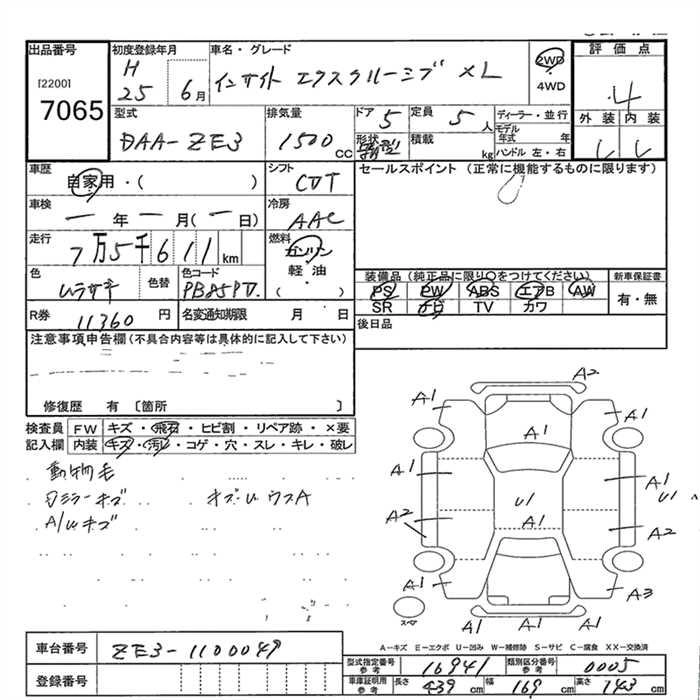 出品番号
[2200]
7065
初度登録年月
H
25 6月
車名・グレード
インサイト エクスクルーシブ XL
2WD
4WD
評価点
4
外装 内装
型式
DAA-ZE3
排気量
1500 cc
ドア
5
定員
5 人
形状
積載
kg
ディーラー・並行
モデル
年式 年
ハンドル 左・右
車歴
自家用・( )
シフト
CVT
セールスポイント (正常に機能するものに限ります)
車検
年 月( 日)
冷房
AAC
走行
7万5千611km
燃料
ガソリン
軽油
( )
色
ムラサキ
色替
色コード
PB85P
装備品 (純正品に限り○をつけてください)
PS PW ABS エアB AW
SR ナビ TV カワ
新車保証書
有・無
R券
11360 円
名変通知期限 月 日
後日品
注意事項申告欄(不具合内容等は具体的に記入して下さい)
修復歴 有 〔箇所 〕
検査員
記入欄
FW キズ・飛石・ヒビ割・リペア跡・×要
内装 キズ・汚レ・コゲ・穴・スレ・キレ・破レ
動物毛
ロミラーキズ
A/Wキズ
キズU ウスA
A2
A1 A1
A1
A1 A1
U1 U1
A2 A1 A2
A1 A3
A1 A1
スペア
A-キズ E-エクボ U-凹み W-補修跡 S-サビ C-腐食 XX-交換済
車台番号
ZE3-1100049
登録番号
型式指定番号
参考
16941
類別区分番号
参考
0005
車庫証明用
参考
長さ 439 cm
幅 169 cm
高さ 143 cm